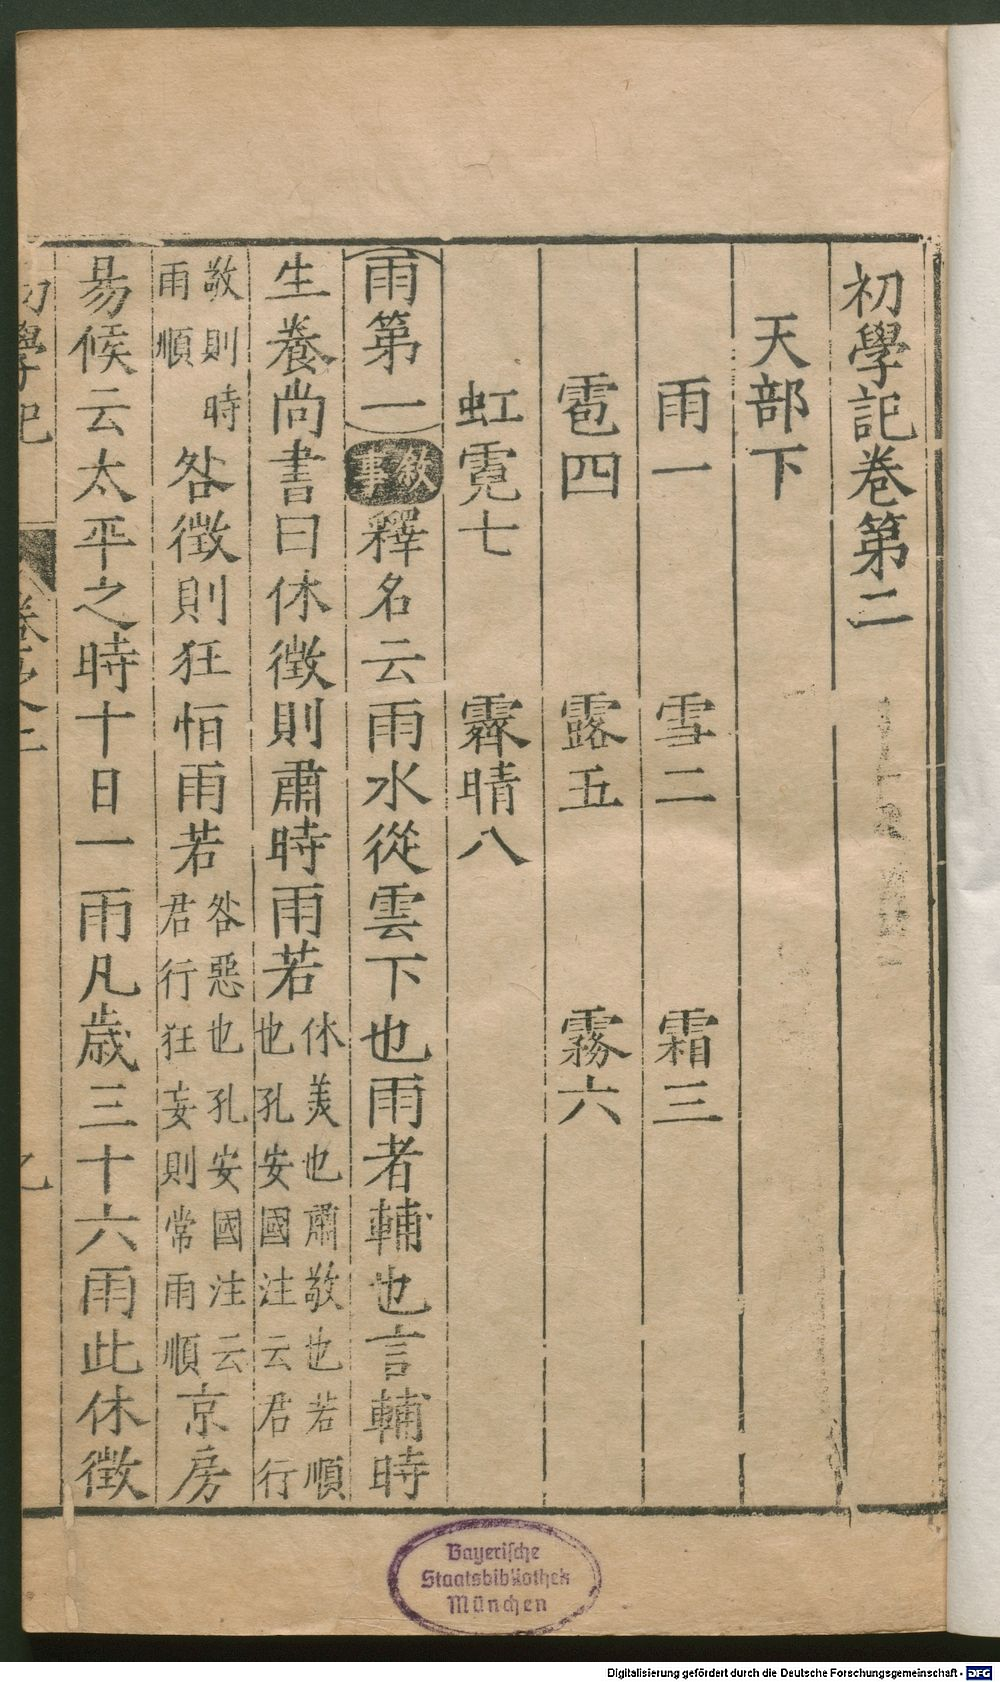 初學記卷第二
天部下
雨一 雪二 霜三
雹四 露五 霧六
虹霓七 霽晴八
雨第一 敘事 釋名云雨水從雲下也雨者輔也言輔時
生養尚書曰休徵則肅時雨若 休美也肅敬也若順也孔安國注云君行
敬則時雨順 咎徵則狂恒雨若 咎惡也孔安國注云君行狂妄則常雨順 京房
易候云太平之時十日一雨凡歲三十六雨此休徵
初學記 卷之二
Bayerische
Staatsbibliothek
München
Digitalisierung gefördert durch die Deutsche Forschungsgemeinschaft - DFG